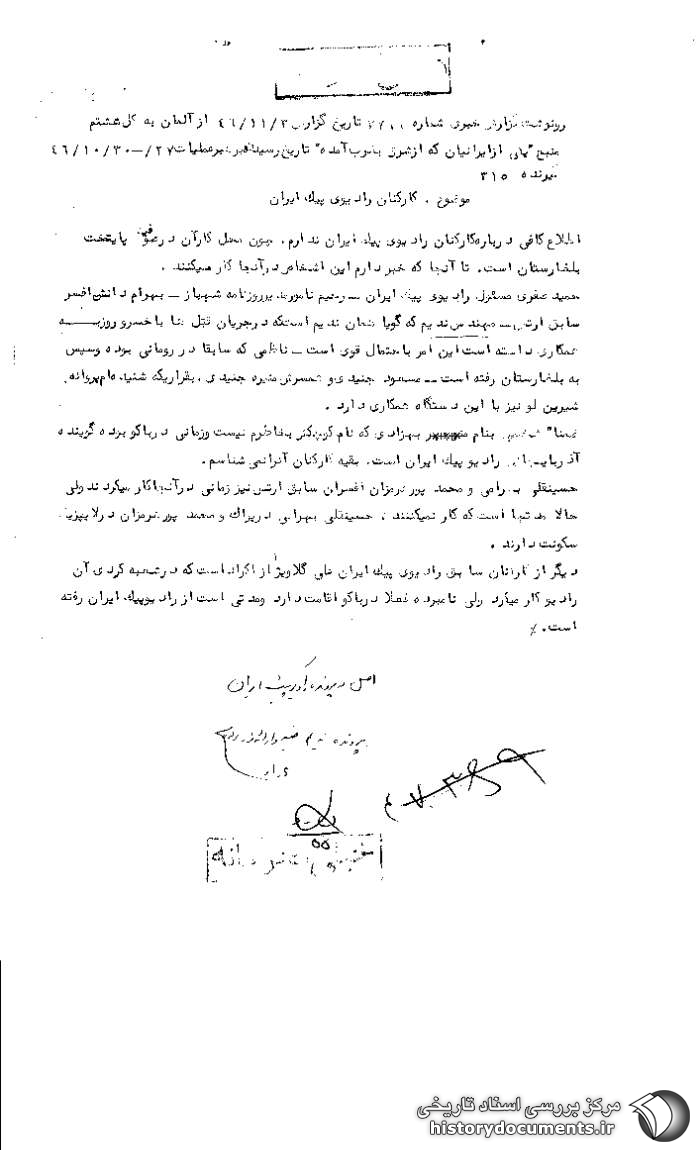 رونوشت گزارش خبری شماره تاریخ گزارش ٤٦/١١/٣ از آلمان به کل هشتم
منبع یکی از ایرانیان که از شرق بغرب آمده تاریخ رسیدن خبر به رهبر عملیات ٢٧/-٤٦/١٠/٣٠
گیرنده ٣١٥
موضوع . کارکنان رادیوی پیک ایران
اطلاع کافی درباره کارکنان رادیوی پیک ایران ندارم . چون محل کار آن در صوفیه پایتخت
بلغارستان است . تا آنجا که خبر دارم این اشخاص در آنجا کار میکنند .
حمید صفری مسئول رادیوی پیک ایران ــ رحیم نامور مدیر روزنامه شهباز ــ بهرام دانش افسر
سابق ارتش ــ مهندس ندیم که گویا همان ندیم است که در جریان قتل ها با خسرو روزبه
همکاری داشته است این امر باحتمال قوی است ــ ناظمی که سابقا در رومانی بوده و سپس
به بلغارستان رفته است ــ مسعود جنیدی و همسرش منیره جنیدی . بقراریکه شنیده ام پروانه
شیرین لو نیز با این دستگاه همکاری دارد .
ضمنا" شخصی بنام بهزادی که نام کوچکش بخاطرم نیست و زمانی در باکو بوده گوینده
آذربایجانی رادیو پیک ایران است . بقیه کارکنان آنرا نمی شناسم .
حسینقلی بهرامی و محمد پور هرمزان افسران سابق ارتش نیز زمانی در آنجا کار میکردند ولی
حالا مدتها است که کار نمیکنند . حسینقلی بهرامی در پراک و محمد پور هرمزان در لایپزیک
سکونت دارند .
دیگر از کارکنان سابق رادیوی پیک ایران علی گلاویژ از اکراد است که در شعبه کردی آن
رادیو کار میکرد ولی نامبرده فعلا در باکو اقامت دارد و مدتی است از رادیو پیک ایران رفته
است ./
اصل در پرونده رادیو پیک ایران
پرونده ندیم
مرکز بررسی اسناد تاریخی
historydocuments.ir